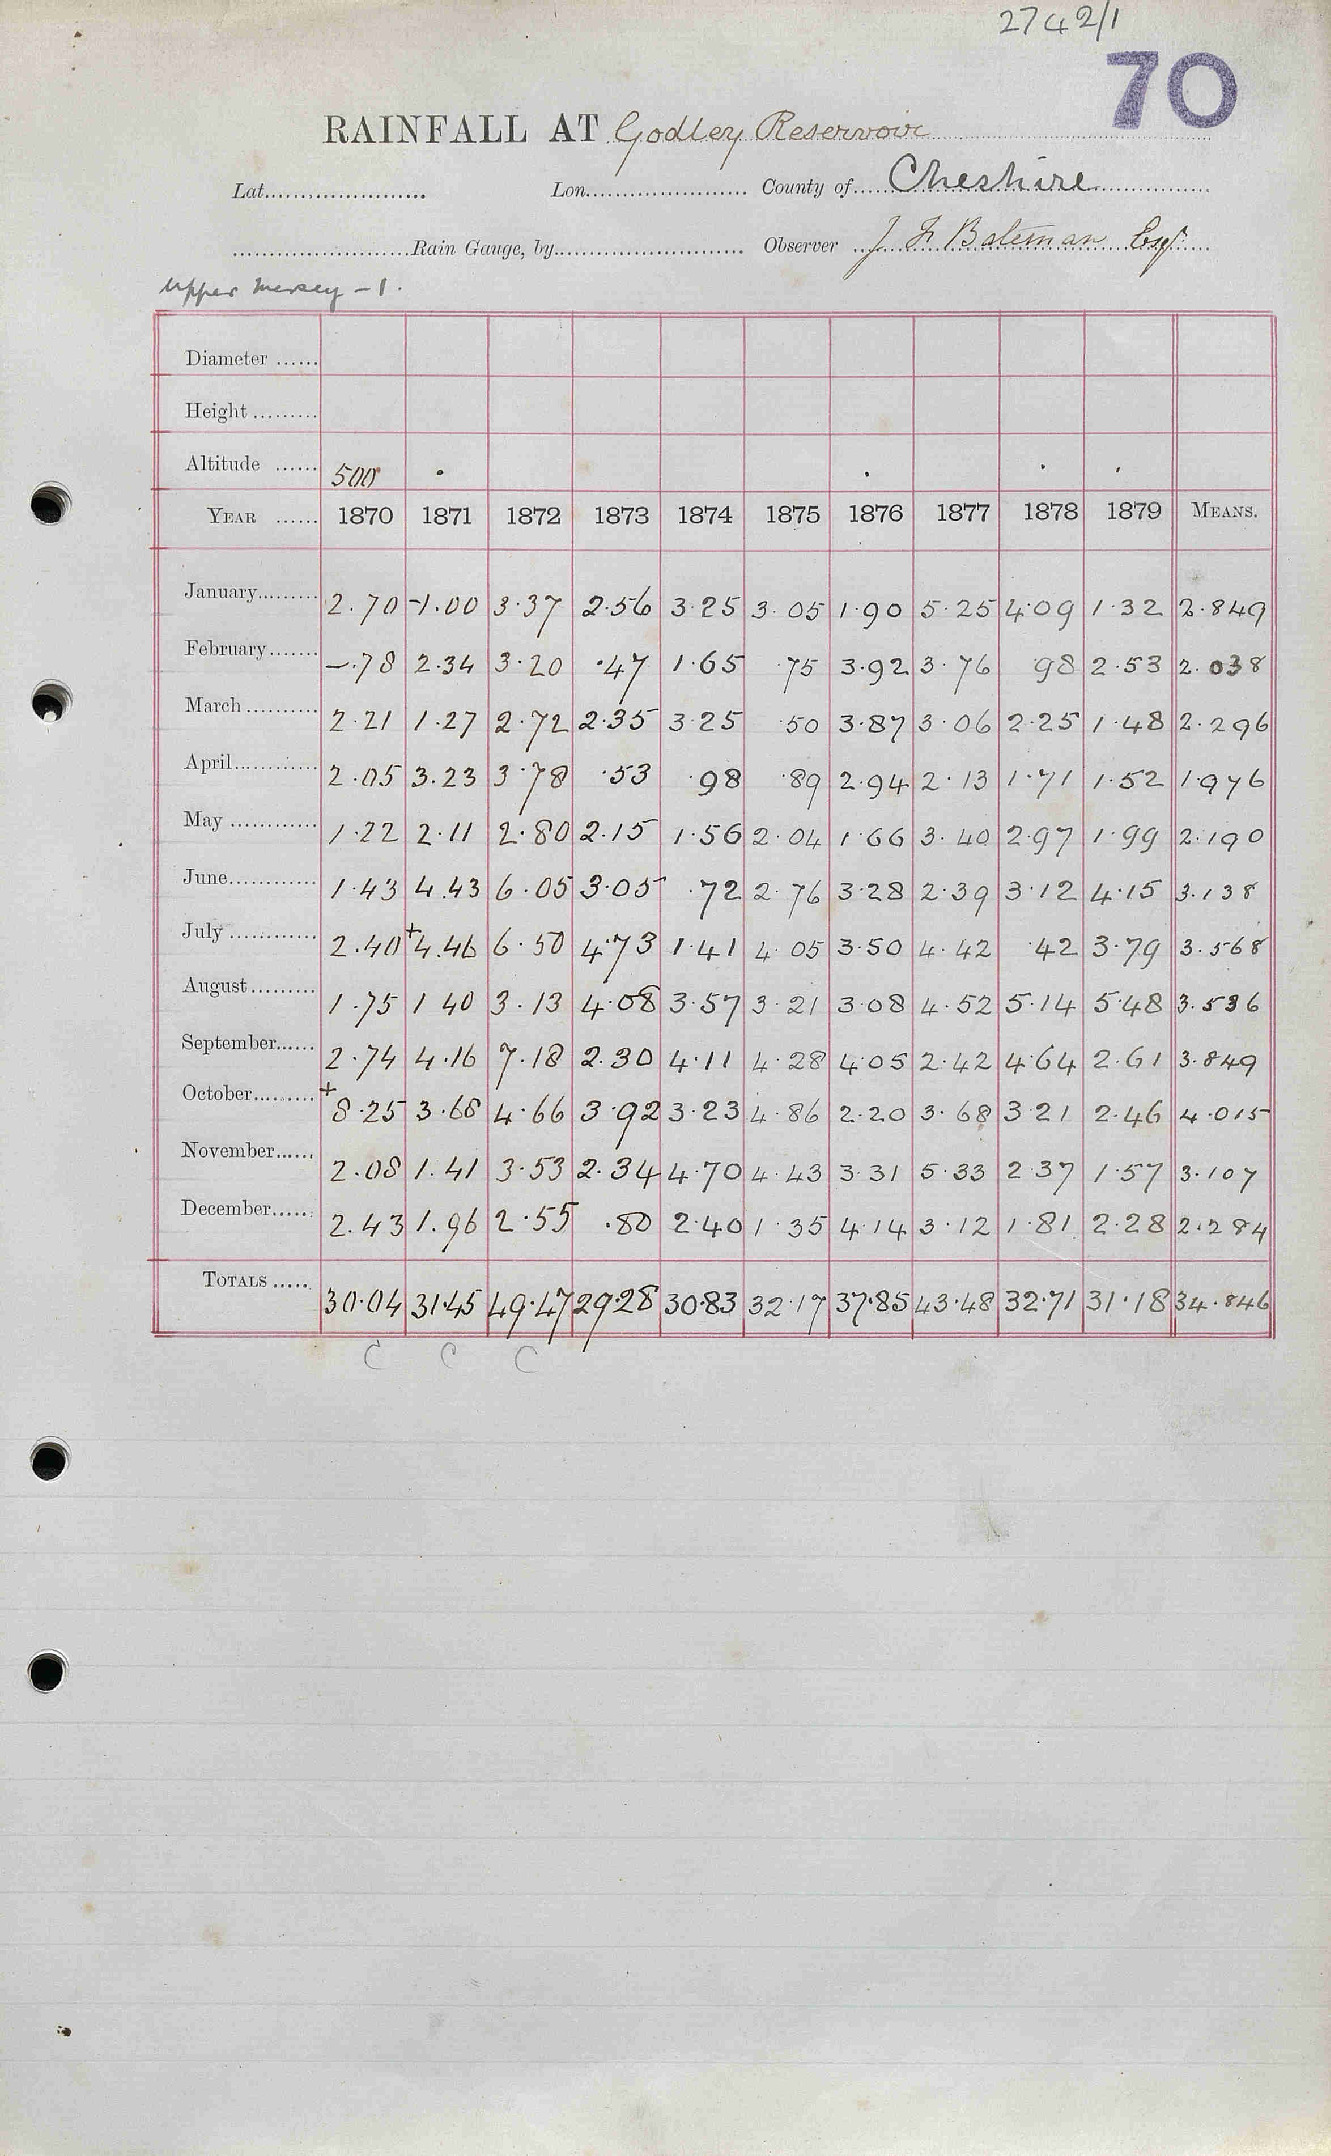 2742/1
70
RAINFALL AT Godley Reservoir
Lat. Lon. County of Cheshire
Rain Gauge, by Observer J F Bateman Esqr
Upper Mersey - 1.
Diameter
Height
Altitude 500
YEAR 1870 1871 1872 1873 1874 1875 1876 1877 1878 1879 MEANS.
January 2.70 -1.00 3.37 2.56 3.25 3.05 1.90 5.25 4.09 1.32 2.849
February -.78 2.34 3.20 .47 1.65 .75 3.92 3.76 98 2.53 2.038
March 2.21 1.27 2.72 2.35 3.25 .50 3.87 3.06 2.25 1.48 2.296
April 2.05 3.23 3.78 .53 .98 .89 2.94 2.13 1.71 1.52 1.976
May 1.22 2.11 2.80 2.15 1.56 2.04 1.66 3.40 2.97 1.99 2.190
June 1.43 4.43 6.05 3.05 .72 2.76 3.28 2.39 3.12 4.15 3.138
July 2.40 +4.46 6.50 4.73 1.41 4.05 3.50 4.42 .42 3.79 3.568
August 1.75 1.40 3.13 4.08 3.57 3.21 3.08 4.52 5.14 5.48 3.536
September 2.74 4.16 7.18 2.30 4.11 4.28 4.05 2.42 4.64 2.61 3.849
October +8.25 3.68 4.66 3.92 3.23 4.86 2.20 3.68 3.21 2.46 4.015
November 2.08 1.41 3.53 2.34 4.70 4.43 3.31 5.33 2.37 1.57 3.107
December 2.43 1.96 2.55 .80 2.40 1.35 4.14 3.12 1.81 2.28 2.284
TOTALS 30.04 31.45 49.47 29.28 30.83 32.17 37.85 43.48 32.71 31.18 34.846
C C C